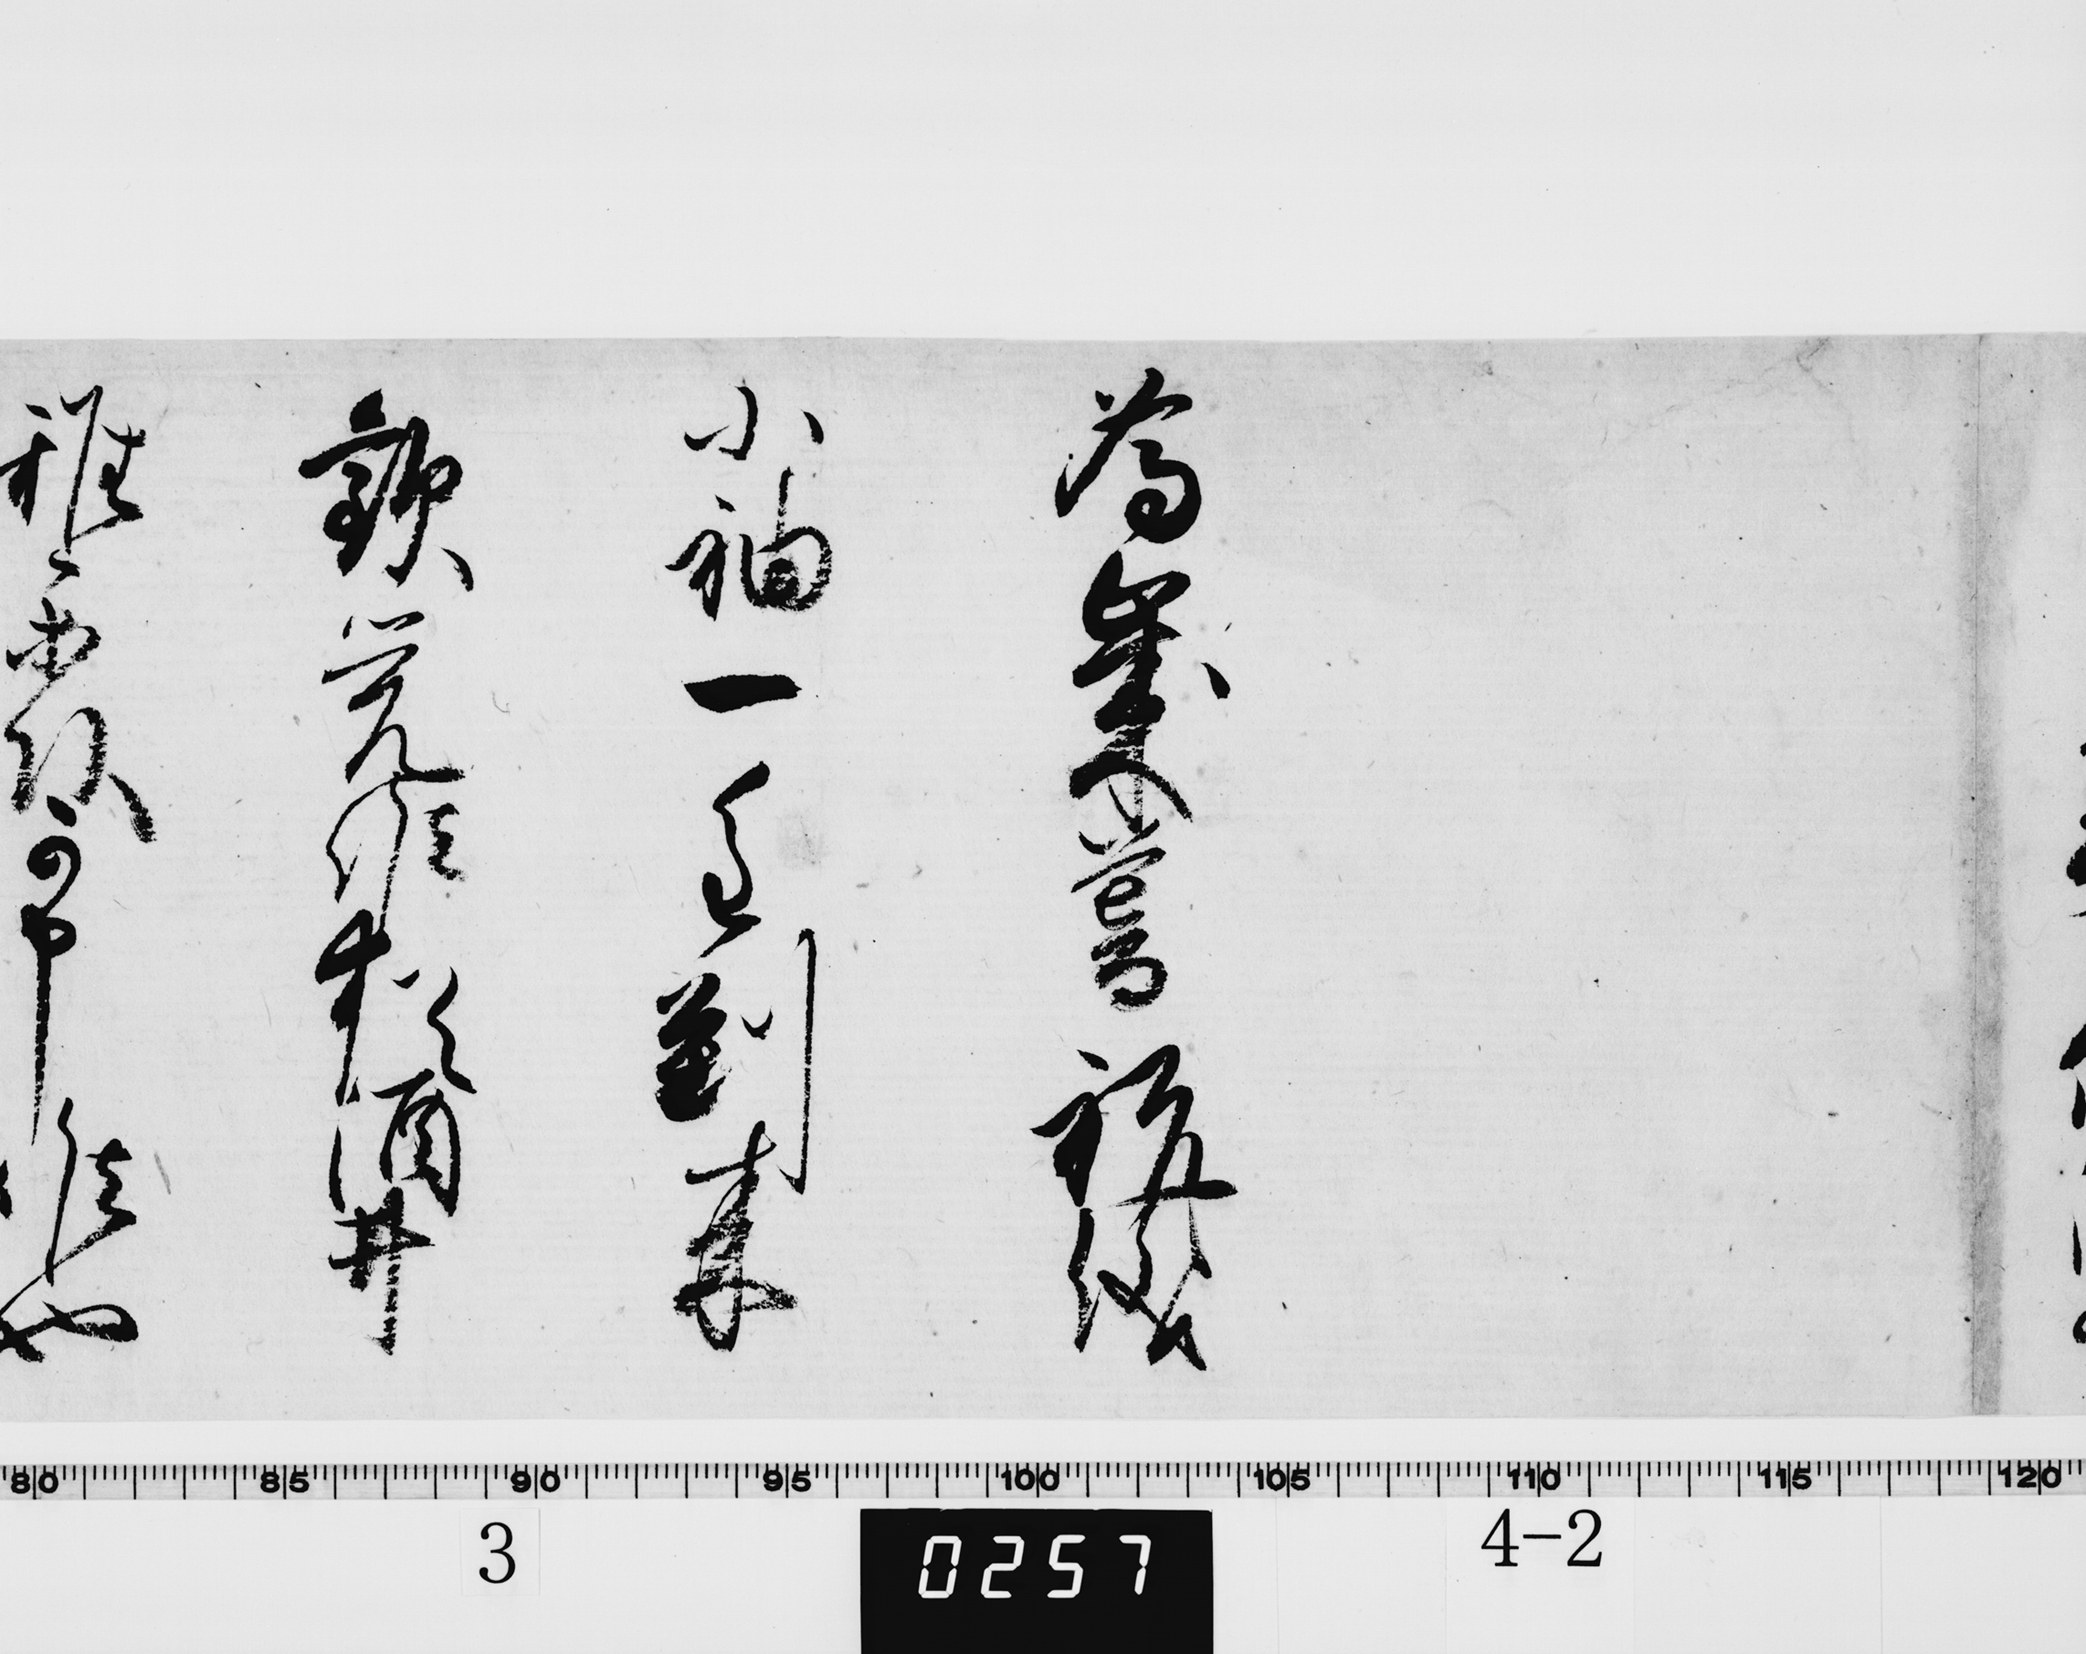 為歳暮祝儀
小袖一重到来
歓覚候猶酒井
雅楽頭可申候也
80 85 90 95 100 105 110 115 120
3
0257
4-2